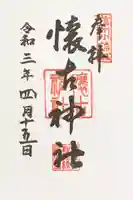 奉拝
懐古神社
令和三年四月十五日